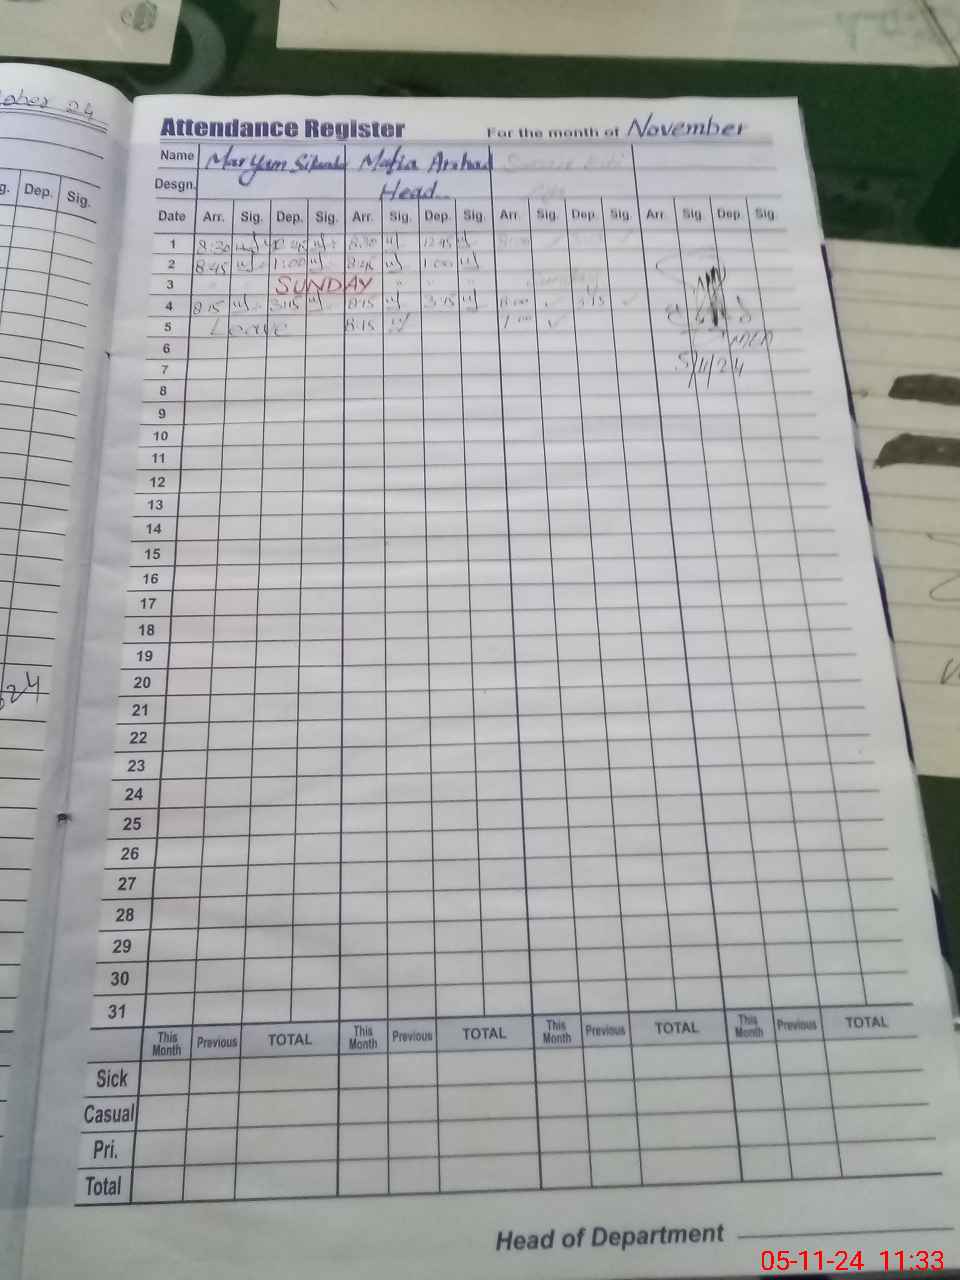 24
Attendance Register For the month of November
Name Maryam Mafia Arshad
Desgn. Head
g. Dep. Sig.
Date Arr. Sig. Dep. Sig. Arr. Sig. Dep. Sig. Arr. Sig. Dep. Sig. Arr. Sig. Dep. Sig.
1 8:30 8:30 12:45
2 8:45 1:00 8:45 1:00
3 SUNDAY
4 8:15 3:15 8:15 3:15 8:00 3:15
5 Leave 8:15
6
7 5/11/24
8
9
10
11
12
13
14
15
16
17
18
19
20
24
21
22
23
24
25
26
27
28
29
30
31
This Month Previous TOTAL This Month Previous TOTAL This Month Previous TOTAL This Month Previous TOTAL
Sick
Casual
Pri.
Total
Head of Department
05-11-24 11:33